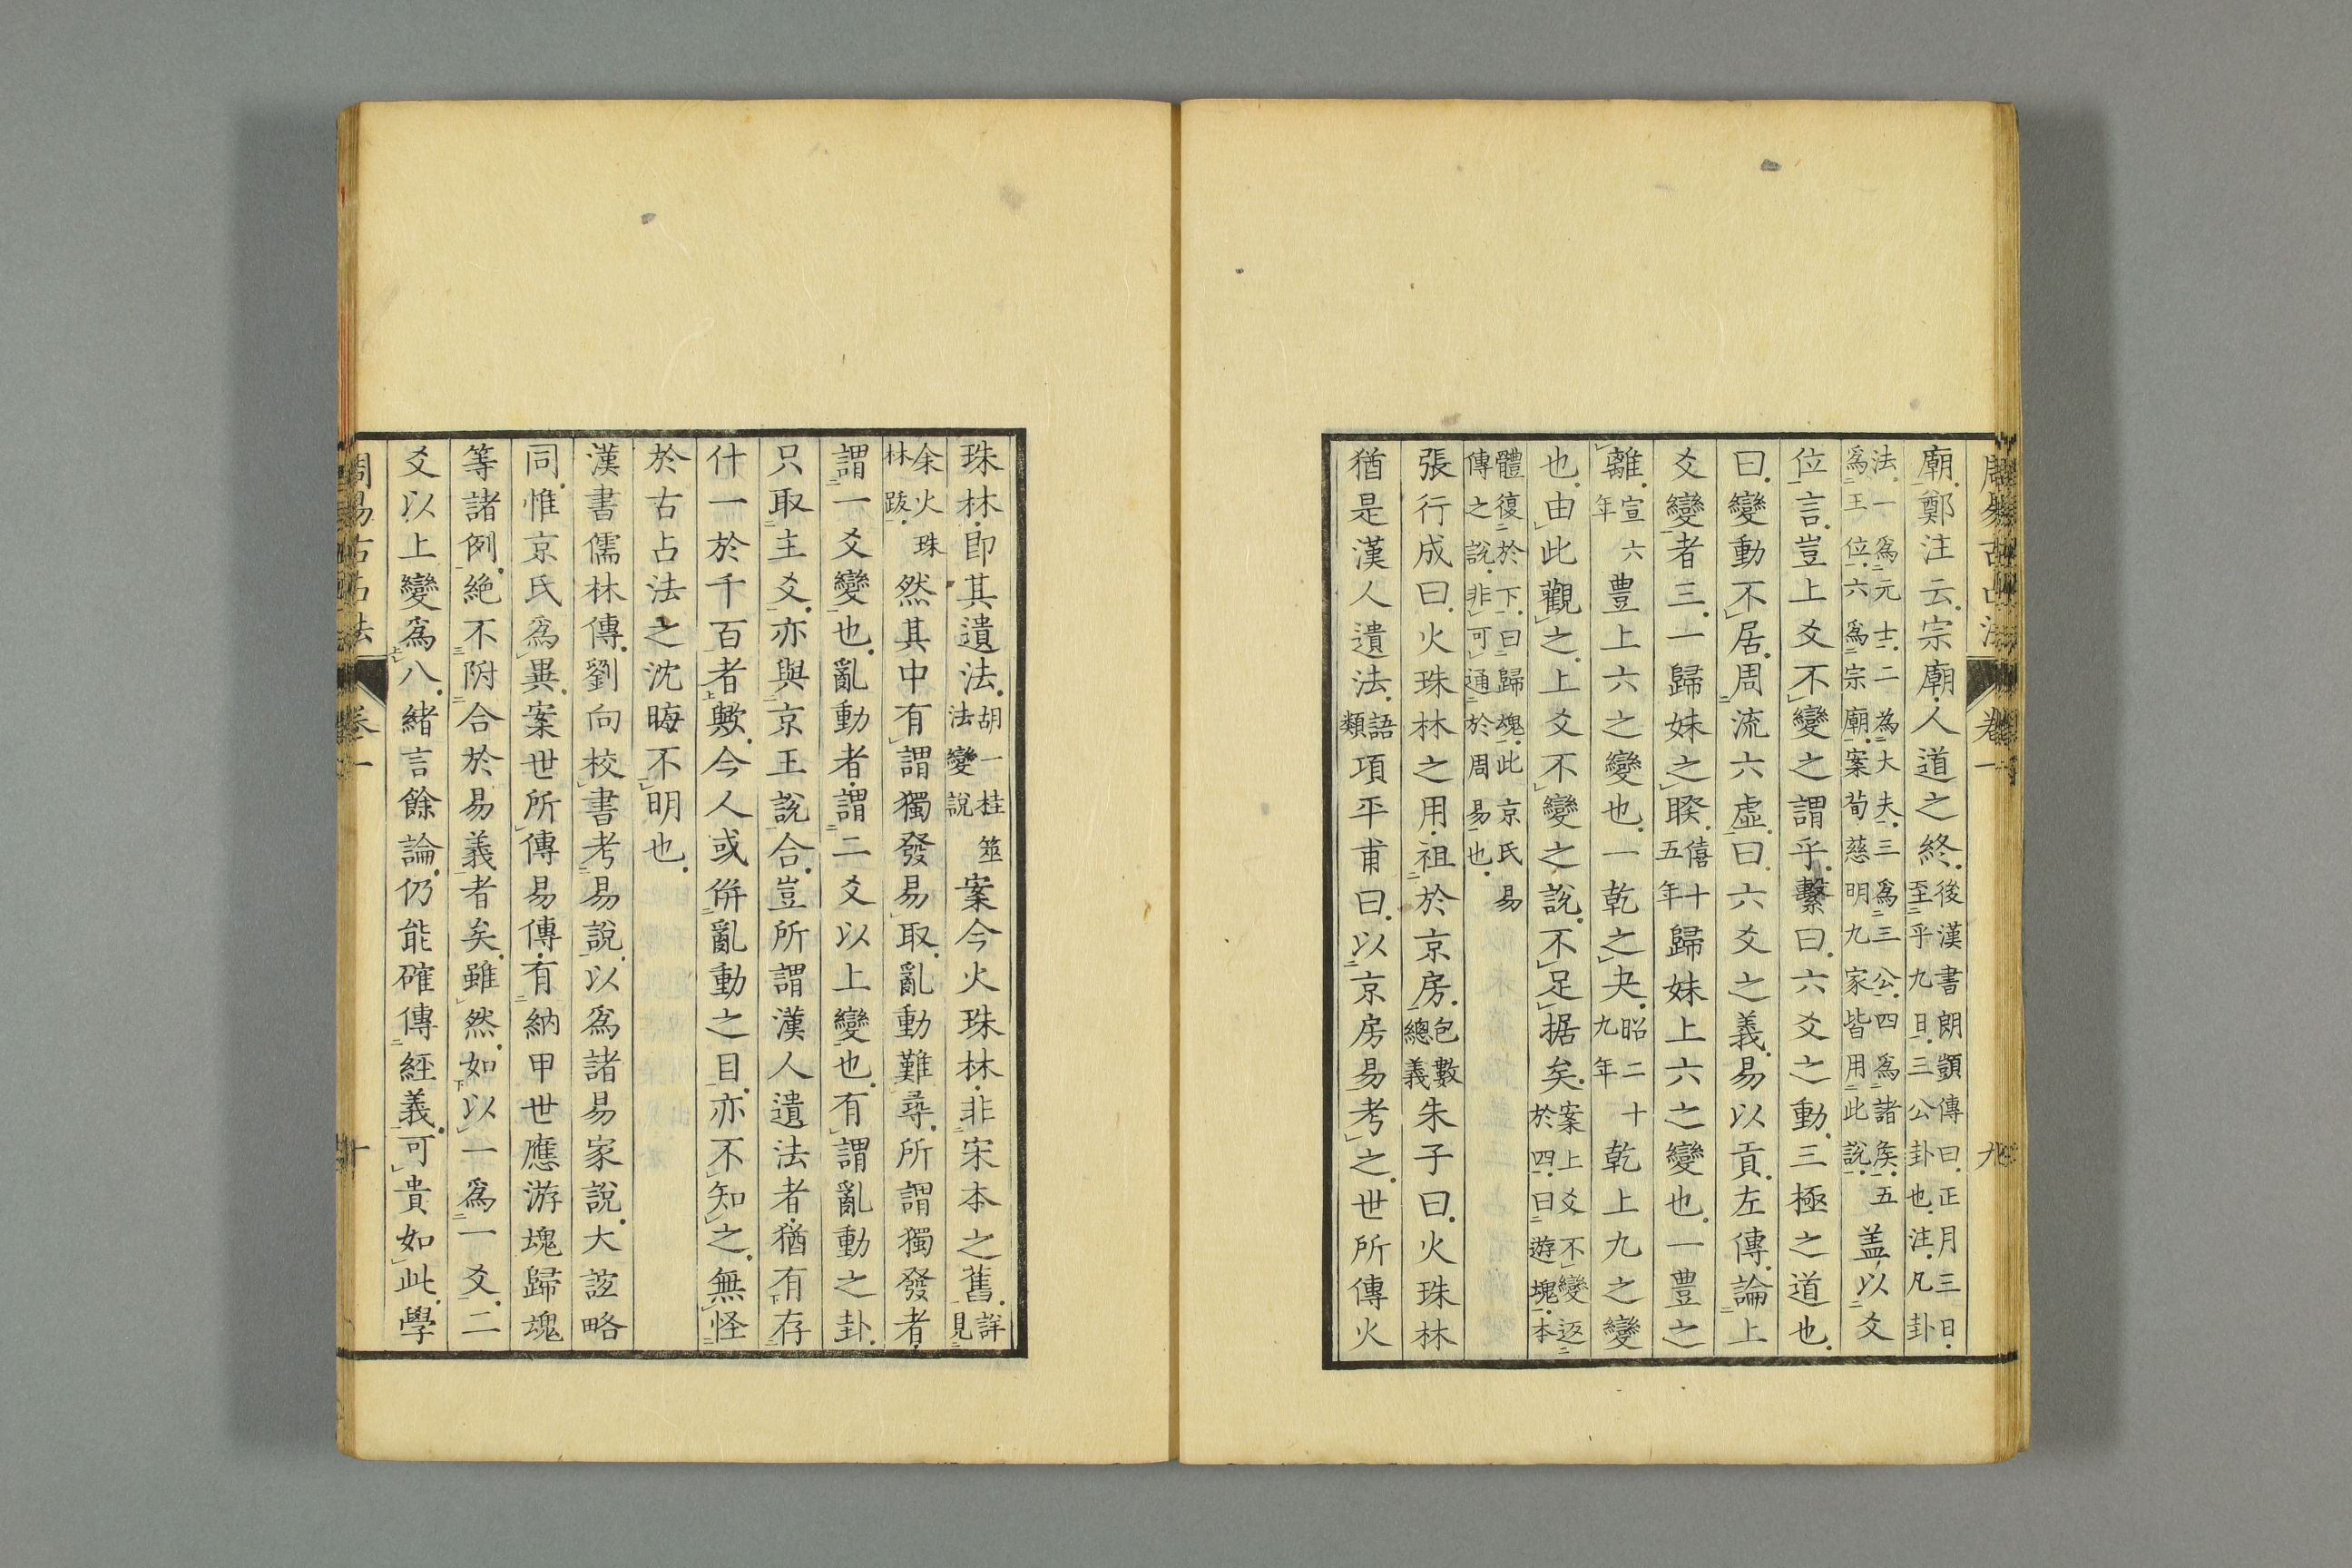 周易古占法 卷一 九
廟鄭注云宗廟人道之終後漢書朗顗傳曰正月三日至乎九日三公卦也注凡卦
法一為元士二為大夫三爲三公四爲諸矦五爲王位六爲宗廟案荀慈明九家皆用此說盖以爻
位言豈上爻不變之謂乎繫曰六爻之動三極之道也
曰變動不居周流六虛曰六爻之義易以貢左傳論上
爻變者三一歸妹之睽僖十五年歸妹上六之變也一豊之
離宣六年豊上六之變也一乾之夬昭二十九年乾上九之變
也由此觀之上爻不變之說不足据矣案上爻不變返於四曰遊塊本
體復於下曰歸魂此京氏易傳之說非可通於周易也
張行成曰火珠林之用祖於京房包數總義朱子曰火珠林
猶是漢人遺法語類項平甫曰以京房易考之世所傳火
珠林卽其遺法胡一桂筮法變說案今火珠林非宋本之舊詳見
余火珠林跋然其中有謂獨發易取亂動難尋所謂獨發者
謂一爻變也亂動者謂二爻以上變也有謂亂動之卦
只取主爻亦與京王說合豈所謂漢人遺法者猶有存
什一於千百者歟今人或倂亂動之目亦不知之無怪
於古占法之沈晦不明也
漢書儒林傳劉向校書考易說以爲諸易家說大誼略
同惟京氏爲異案世所傳易傳有納甲世應游塊歸魂
等諸例絕不附合於易義者矣雖然如以一爲一爻二
爻以上變爲八緒言餘論仍能確傳經義可貴如此學
周易古占法 卷一 十